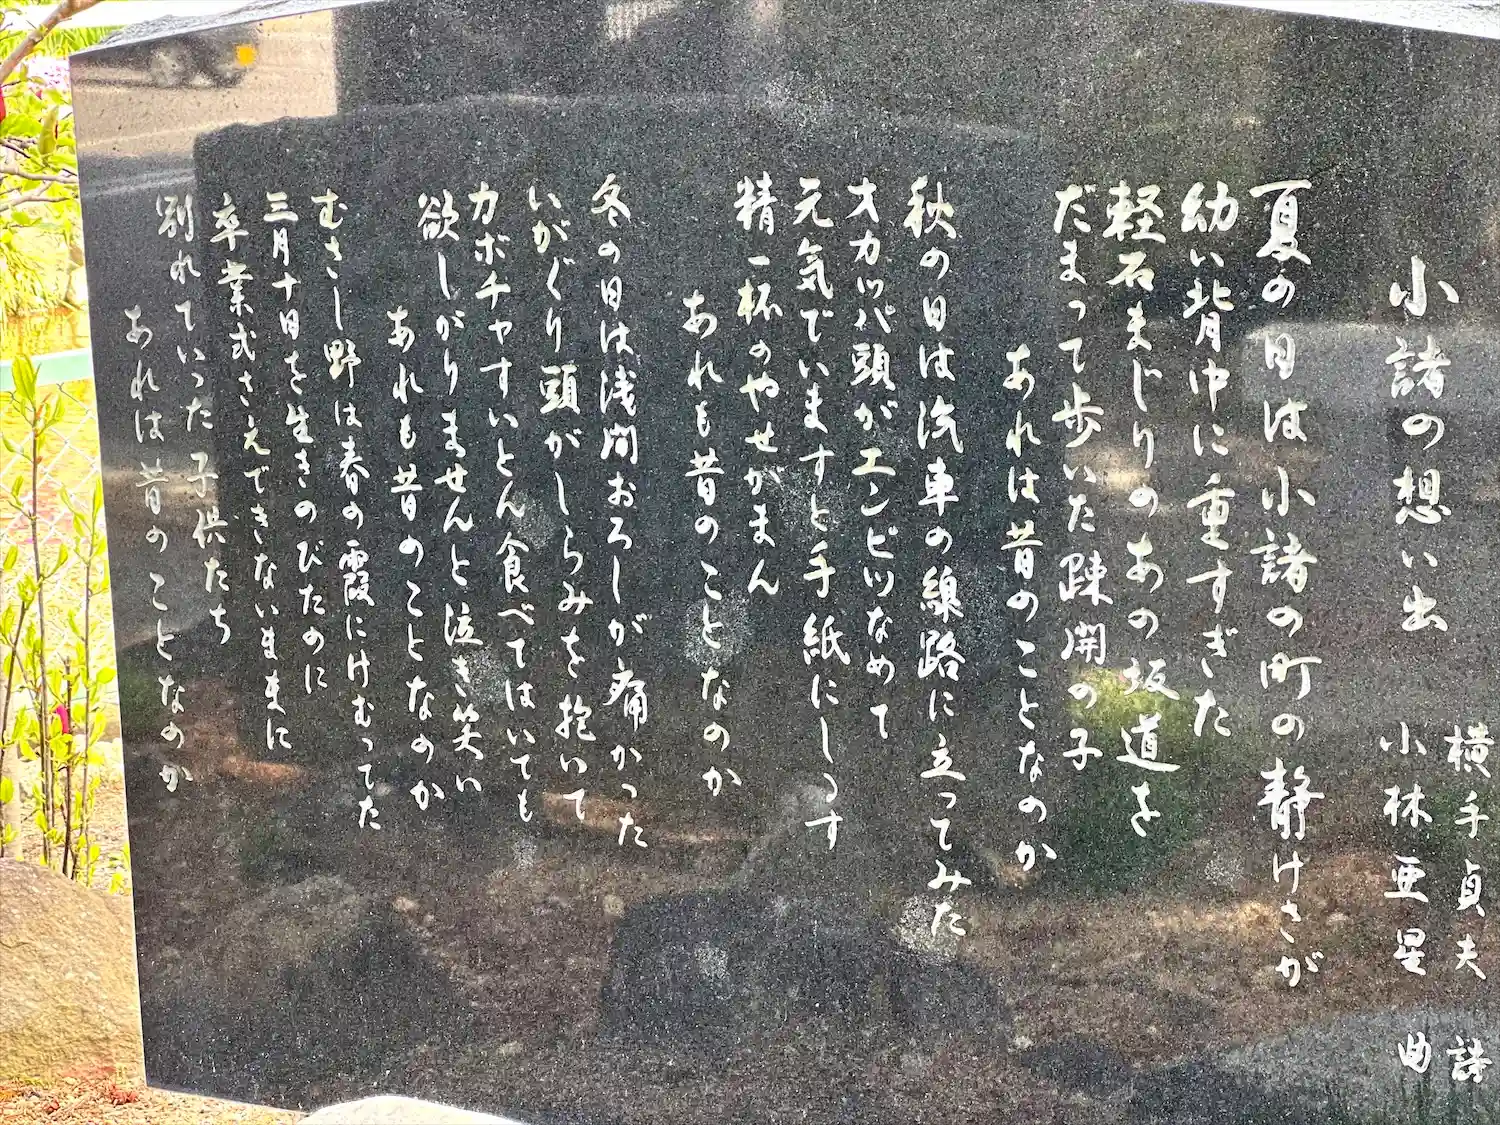 小諸の想い出
横手貞夫 詩
小林亜星 曲
夏の日は小諸の町の静けさが
幼い背中に重すぎた
軽石まじりのあの坂道を
だまって歩いた疎開の子
あれは昔のことなのか
秋の日は汽車の線路に立ってみた
オカッパ頭がエンピツなめて
元気でいますと手紙にしるす
精一杯のやせがまん
あれも昔のことなのか
冬の日は浅間おろしが痛かった
いがぐり頭がしらみを抱いて
カボチャすいとん食べてはいても
欲しがりませんと泣き笑い
あれも昔のことなのか
むさし野は春の霞にけむってた
三月十日を生きのびたのに
卒業式さえできないままに
別れていった子供たち
あれは昔のことなのか